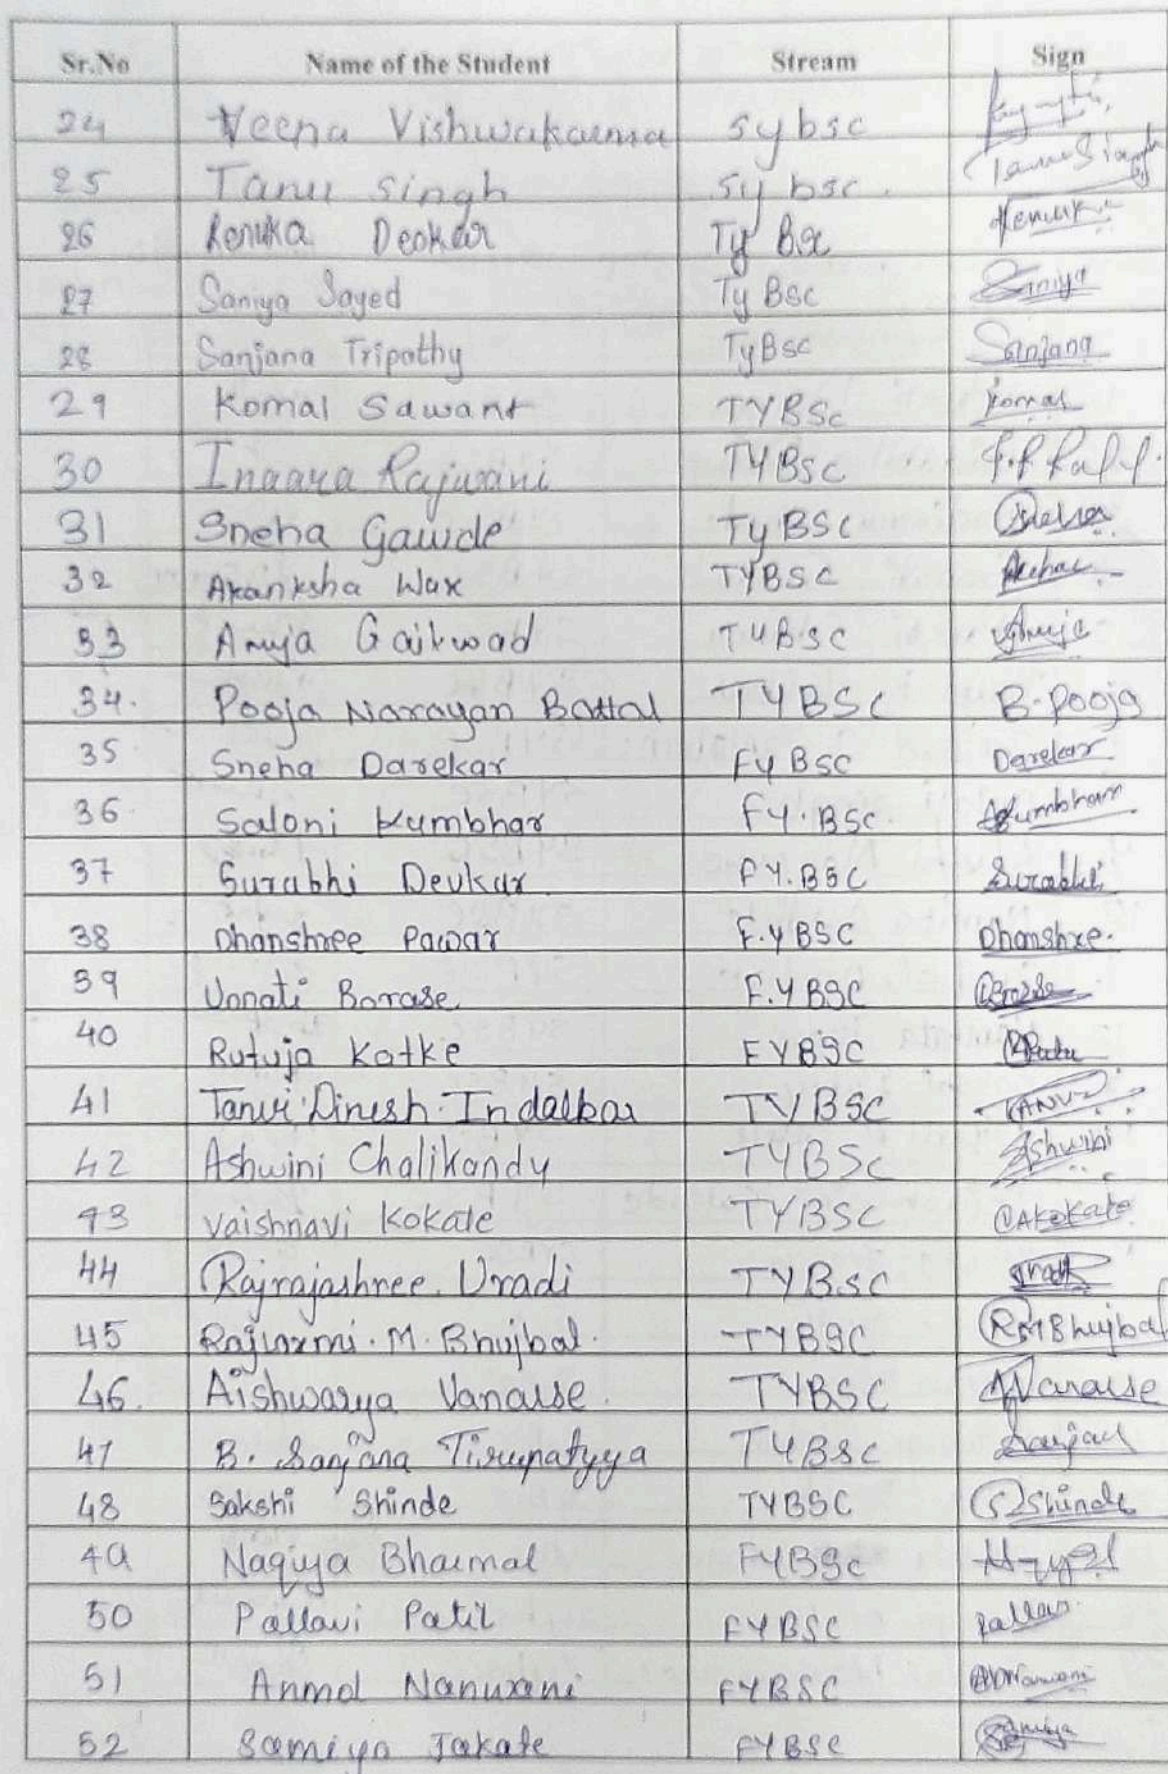 Sr.No Name of the Student Stream Sign
24 Veena Vishwakarma sybsc
25 Tanu Singh sy bsc. Tanu Singh
26 Renuka Deokar Ty Bsc Renuka
27 Saniya Sayed Ty Bsc Saniya
28 Sanjana Tripathy TyBsc Sanjana
29 Komal Sawant TYBSc Komal
30 Inaara Rajwani TYBSc
31 Sneha Gawde Ty BSC Sneha
32 Akanksha Wax TYBSC
33 Anuja Gaikwad TYBSC Anuja
34. Pooja Narayan Battal TYBSC B.Pooja
35 Sneha Darekar FYBSC Darekar
36 Saloni Kumbhar FY.BSC Skumbhar
37 Surabhi Devkar FY.BSC Surabhi
38 Dhanshree Pawar F.Y BSC Dhanshree.
39 Unnati Borase F.Y BSC Borse
40 Rutuja Katke FYBSC
41 Tanvi Dinesh Indalkar TYBSC TANVI
42 Ashwini Chalikandy TYBSC Ashwini
43 Vaishnavi Kokate TYBSC VAKokate
44 Rajrajashree. Uradi TYBSC
45 Rajlaxmi. M. Bhujbal. TYBSC RMBhujbal
46. Aishwarya Vanarse. TYBSC AVanarse
47 B. Sanjana Tirupatyya TYBSC Sanjana
48 Sakshi Shinde TYBSC SShinde
49 Naqiya Bharmal FYBSc
50 Pallavi Patil FYBSC Pallavi
51 Anmol Nanwani FYBSC ANanwani
52 Samiya Jakate FYBSC Samiya